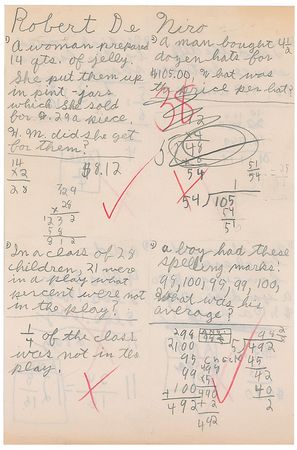 Robert De Niro
1) A woman prepared
14 qts. of jelly.
She put them up
in pint-jars
which she sold
for $.29 a piece.
did she get
for them?
14
×2
28
$8.12
.29
× 28
232
58
812
2) A man bought 4 1/2
dozen hats for
$105.00, What was
price per hat?
×4
48
6
54
1 51/54
54) 105
54
51
3) In a class of 28
children, 21 were
in a play what
percent were not
in the play?
1/4 of the class
was not in the
play.
a boy had these
spelling marks:
99, 100, 95, 99, 100,
What was his
average?
298
2100
95
+100
492
check
490
+ 2
492
5) 492
45
42
40
2